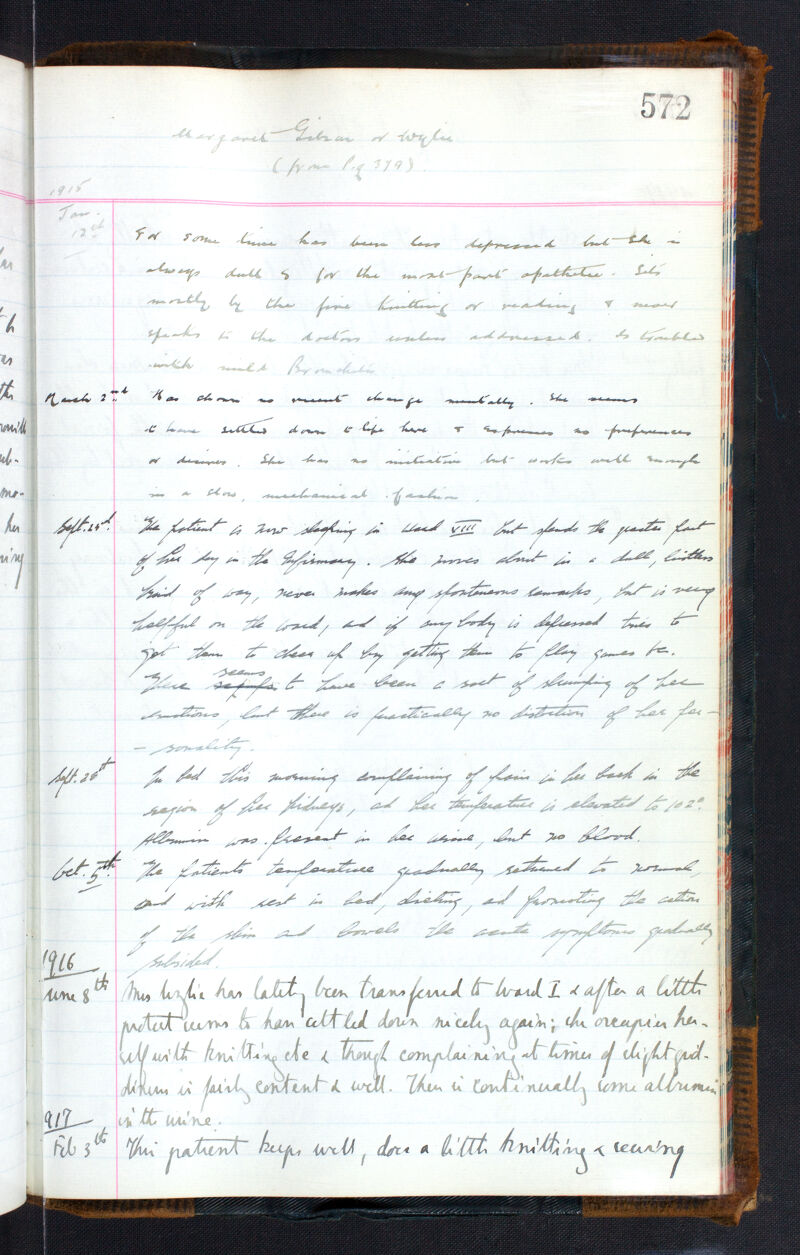 572
Margaret Gibson or Wylie
(from Pg 379).
1915
Jan.
12th
For some time has been less depressed but she is
always dull & for the most part apathetic. Sits
mostly by the fire knitting or reading & never
speaks to the doctors unless addressed. Is troubled
with mild Bronchitis.
March 2nd. Has shown no recent change mentally. She seems
to have settled down to life here & expresses no preferences
or desires. She has no initiative but works well enough
in a slow, mechanical fashion.
Sept. 25th. The patient is now sleeping in Ward VIII but spends the greater part
of her day in the Infirmary. She moves about in a dull, listless
kind of way, never makes any spontaneous remarks, but is very
helpful on the ward, and if anybody is depressed tries to
get them to cheer up by getting them to play games &c.
There seems to have been a sort of slumping of her
emotions, but there is practically no distortion of her per-
-sonality.
Sept. 26th In bed this morning complaining of pain in her back in the
region of her kidneys, and her temperature is elevated to 102°.
Albumin was present in her urine, but no blood.
Oct. 5th. The patients temperature gradually returned to normal,
and with rest in bed, dieting, and promoting the action
of the skin and bowels the acute symptoms gradually
subsided.
1916
June 8th Mrs Wylie has lately been transferred to Ward I & after a little
protest seems to have settled down nicely again; she occupies her-
self with knitting etc & though complaining at times of slight gid-
diness is fairly content & well. There is continually some albumin
in the urine.
917
Feb 3th This patient keeps well, does a little knitting & sewing